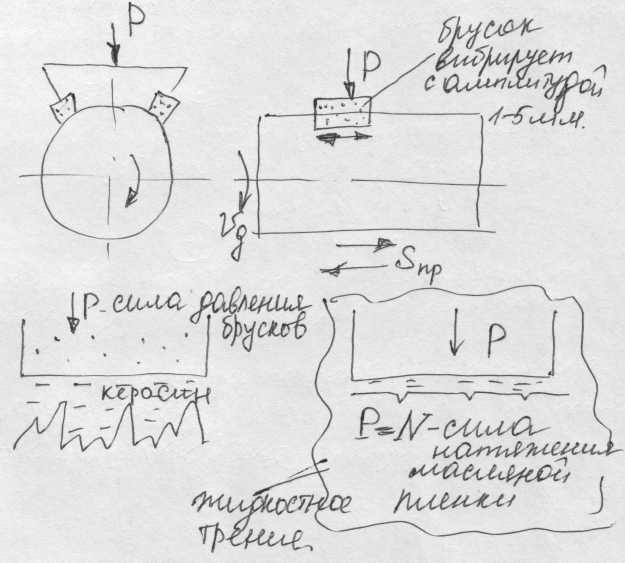 P
P
брусок
вибрирует
с амплитудой
1-5 мм.
Vд
Sпр
P-сила давления
брусков
керосин
P
P=N-сила
натяжения
масляной
пленки
жидкостное
трение